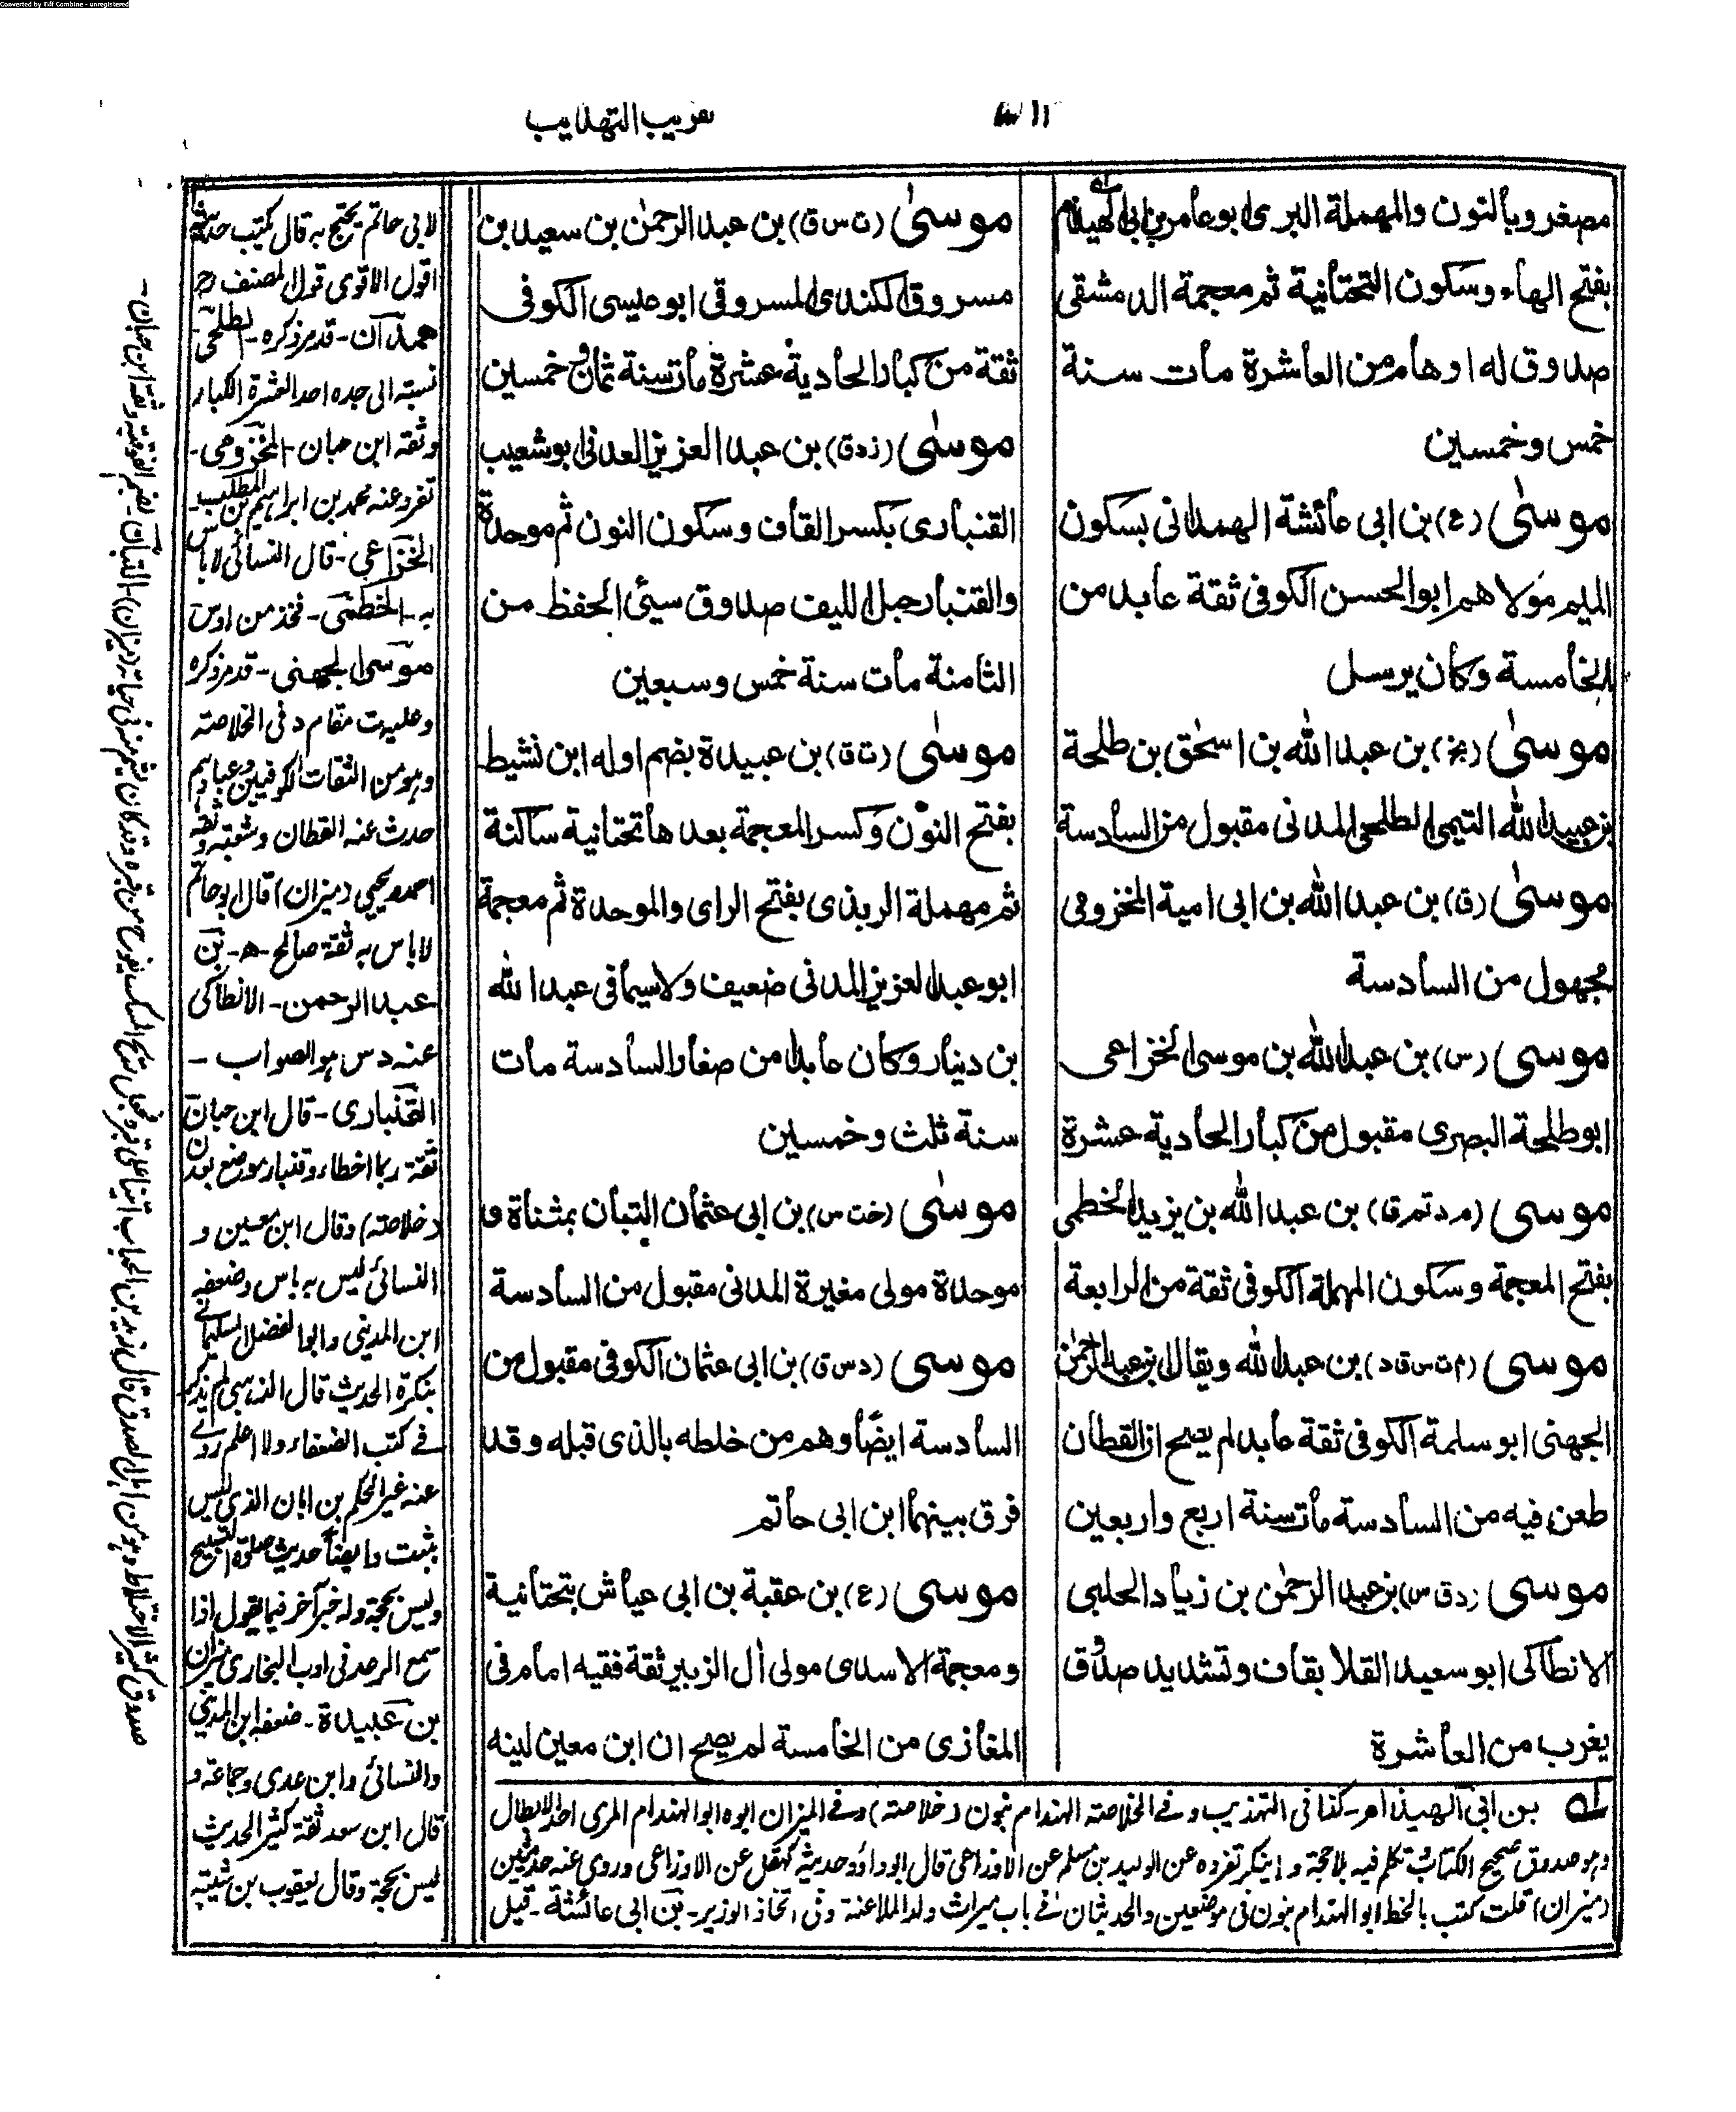 Converted by Tiff Combine - unregistered
تقريب التهذيب
مصغر وبالنون والمهملة البرى ابو عامر بن ابى الهيذام
بفتح الهاء وسكون التحتانية ثم معجمة الدمشقى
صدوق له اوهام من العاشرة مات سنة
خمس وخمسين
موسىٰ (ع) بن ابى عائشة الهمدانى بسكون
الميم مولاهم ابو الحسن الكوفى ثقة عابد من
الخامسة وكان يرسل
موسىٰ (بخ) بن عبد الله بن اسحٰق بن طلحة
بن عبيد الله التيمى الطلحى المدنى مقبول من السادسة
موسىٰ (ق) بن عبد الله بن ابى امية المخزومى
مجهول من السادسة
موسى (س) بن عبد الله بن موسى الخزاعى
ابو طلحة البصرى مقبول من كبار الحادية عشرة
موسى (م د تم ق) بن عبد الله بن يزيد الخطمى
بفتح المعجمة وسكون المهملة الكوفى ثقة من الرابعة
موسى (م ت س ق د) بن عبد الله ويقال بن عبد الرحمٰن
الجهنى ابو سلمة الكوفى ثقة عابد لم يصح ان القطان
طعن فيه من السادسة مات سنة اربع واربعين
موسى (د ق س) بن عبد الرحمٰن بن زياد الحلبى
الانطاكى ابو سعيد القلا بقاف وتشديد صدوق
يغرب من العاشرة
موسىٰ (ت س ق) بن عبد الرحمٰن بن سعيد بن
مسروق الكندى المسروقى ابو عيسى الكوفى
ثقة من كبار الحادية عشرة مات سنة ثمان وخمسين
موسىٰ (ز د ق) بن عبد العزيز العدنى ابو شعيب
القنبارى بكسر القاف وسكون النون ثم موحدة
والقنبار حبل الليف صدوق سيئ الحفظ من
الثامنة مات سنة خمس وسبعين
موسىٰ (ت ق) بن عبيدة بضم اوله ابن نشيط
بفتح النون وكسر المعجمة بعدها تحتانية ساكنة
ثم مهملة الربذى بفتح الراى والموحدة ثم معجمة
ابو عبد العزيز المدنى ضعيف ولا سيما فى عبد الله
بن دينار وكان عابدا من صغار السادسة مات
سنة ثلث وخمسين
موسىٰ (خت س) بن ابى عثمان التبان بمثناة و
موحدة مولى مغيرة المدنى مقبول من السادسة
موسى (د س ق) بن ابى عثمان الكوفى مقبول من
السادسة ايضًا وهم من خلطه بالذى قبله وقد
فرق بينهما ابن ابى حاتم
موسى (ع) بن عقبة بن ابى عياش بتحتانية
ومعجمة الاسدى مولى اٰل الزبير ثقة فقيه امام فى
المغازى من الخامسة لم يصح ان ابن معين لينه
لابى حاتم يحتج به قال كتبت حديثه
اقول الاقوى قول المصنف رح
همدان - قد مر ذكره - الطلحى
نسبته الى جده احد العشرة الكبار
وثقه ابن حبان - المخزومى -
تفرد عنه محمد بن ابراهيم بن المطلب -
الخزاعى - قال النسائى لا باس
به - الخطمى - فخذ من اوس
موسى الجهنى - قد مر ذكره
وعليه ت مقام د فى الخلاصة
وهو من الثقات الكوفيين وعبادهم
حدث عنه القطان وشعبة وثقه
احمد ويحيى (ميزان) قال ابو حاتم
لا باس به ثقة صالح - ه - بن
عبد الرحمن - الانطاكى
عنه د س هو الصواب -
القنبارى - قال ابن حبان
ثقة ربما اخطاء وقنبار موضع بعدن
(خلاصة) وقال ابن معين و
النسائى ليس به باس وضعفه
ابن المدينى وابو الفضل السليمانى
بنكرة الحديث قال الذهبى لم يذكر
فى كتب الضعفاء ولا اعلم روى
عنه غير الحكم بن ابان الذى ليس
بثبت وايضاً حديث صلوة التسبيح
وليس بحجة وله خبر آخر فيما يقول اذا
سمع الرعد فى ادب البخارى ميزان
بن عبيدة - ضعفه ابن المدينى
والنسائى وابن عدى وجماعة و
قال ابن سعد ثقة كثير الحديث
ليس بحجة وقال يعقوب بن شيبة
بن ابى الهيذام - كذا فى التهذيب وفى الخلاصة الهندام بنون (خلاصة) وفى الميزان ابوه ابو الهندام المرى احد الابطال
وهو صدوق صحيح الكتاب تكلم فيه بلا حجة و ينكر تفرده عن الوليد بن مسلم عن الاوزاعى قال ابو داؤد حديثه كهقل عن الاوزاعى وروى عنه حديثين
(ميزان) قلت كتب بالخط ابو الهندام بنون فى موضعين والحديثان فى باب ميراث ولد الملاعنة وفى اتخاذ الوزير - بن ابى عائشة - قيل
صدوق كثير الاختلاط وهو من اهل الصدق قال زيد بن الحباب اتينا على قبره